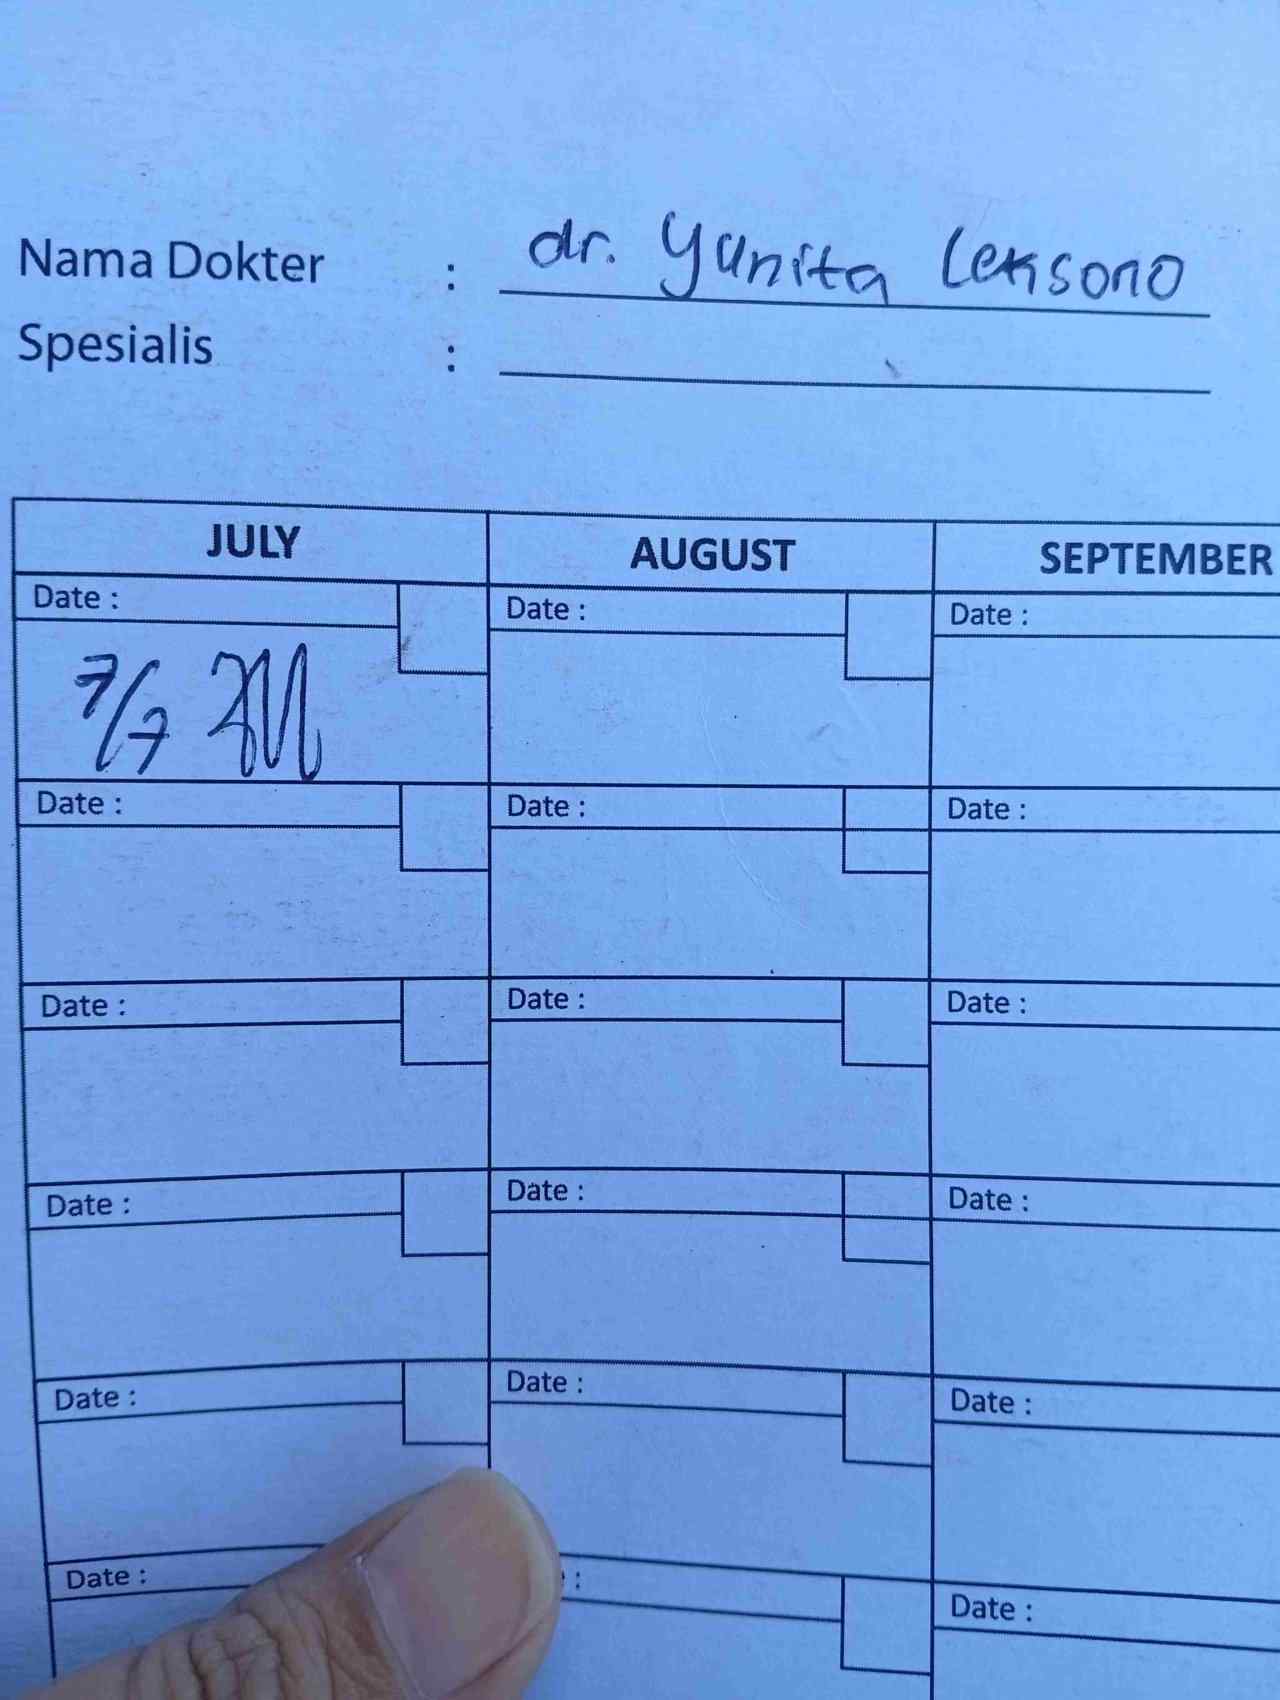 Nama Dokter : dr. Yunita Leksono
Spesialis :
JULY AUGUST SEPTEMBER
Date : Date : Date :
7/7
Date : Date : Date :
Date : Date : Date :
Date : Date : Date :
Date : Date : Date :
Date : : Date :